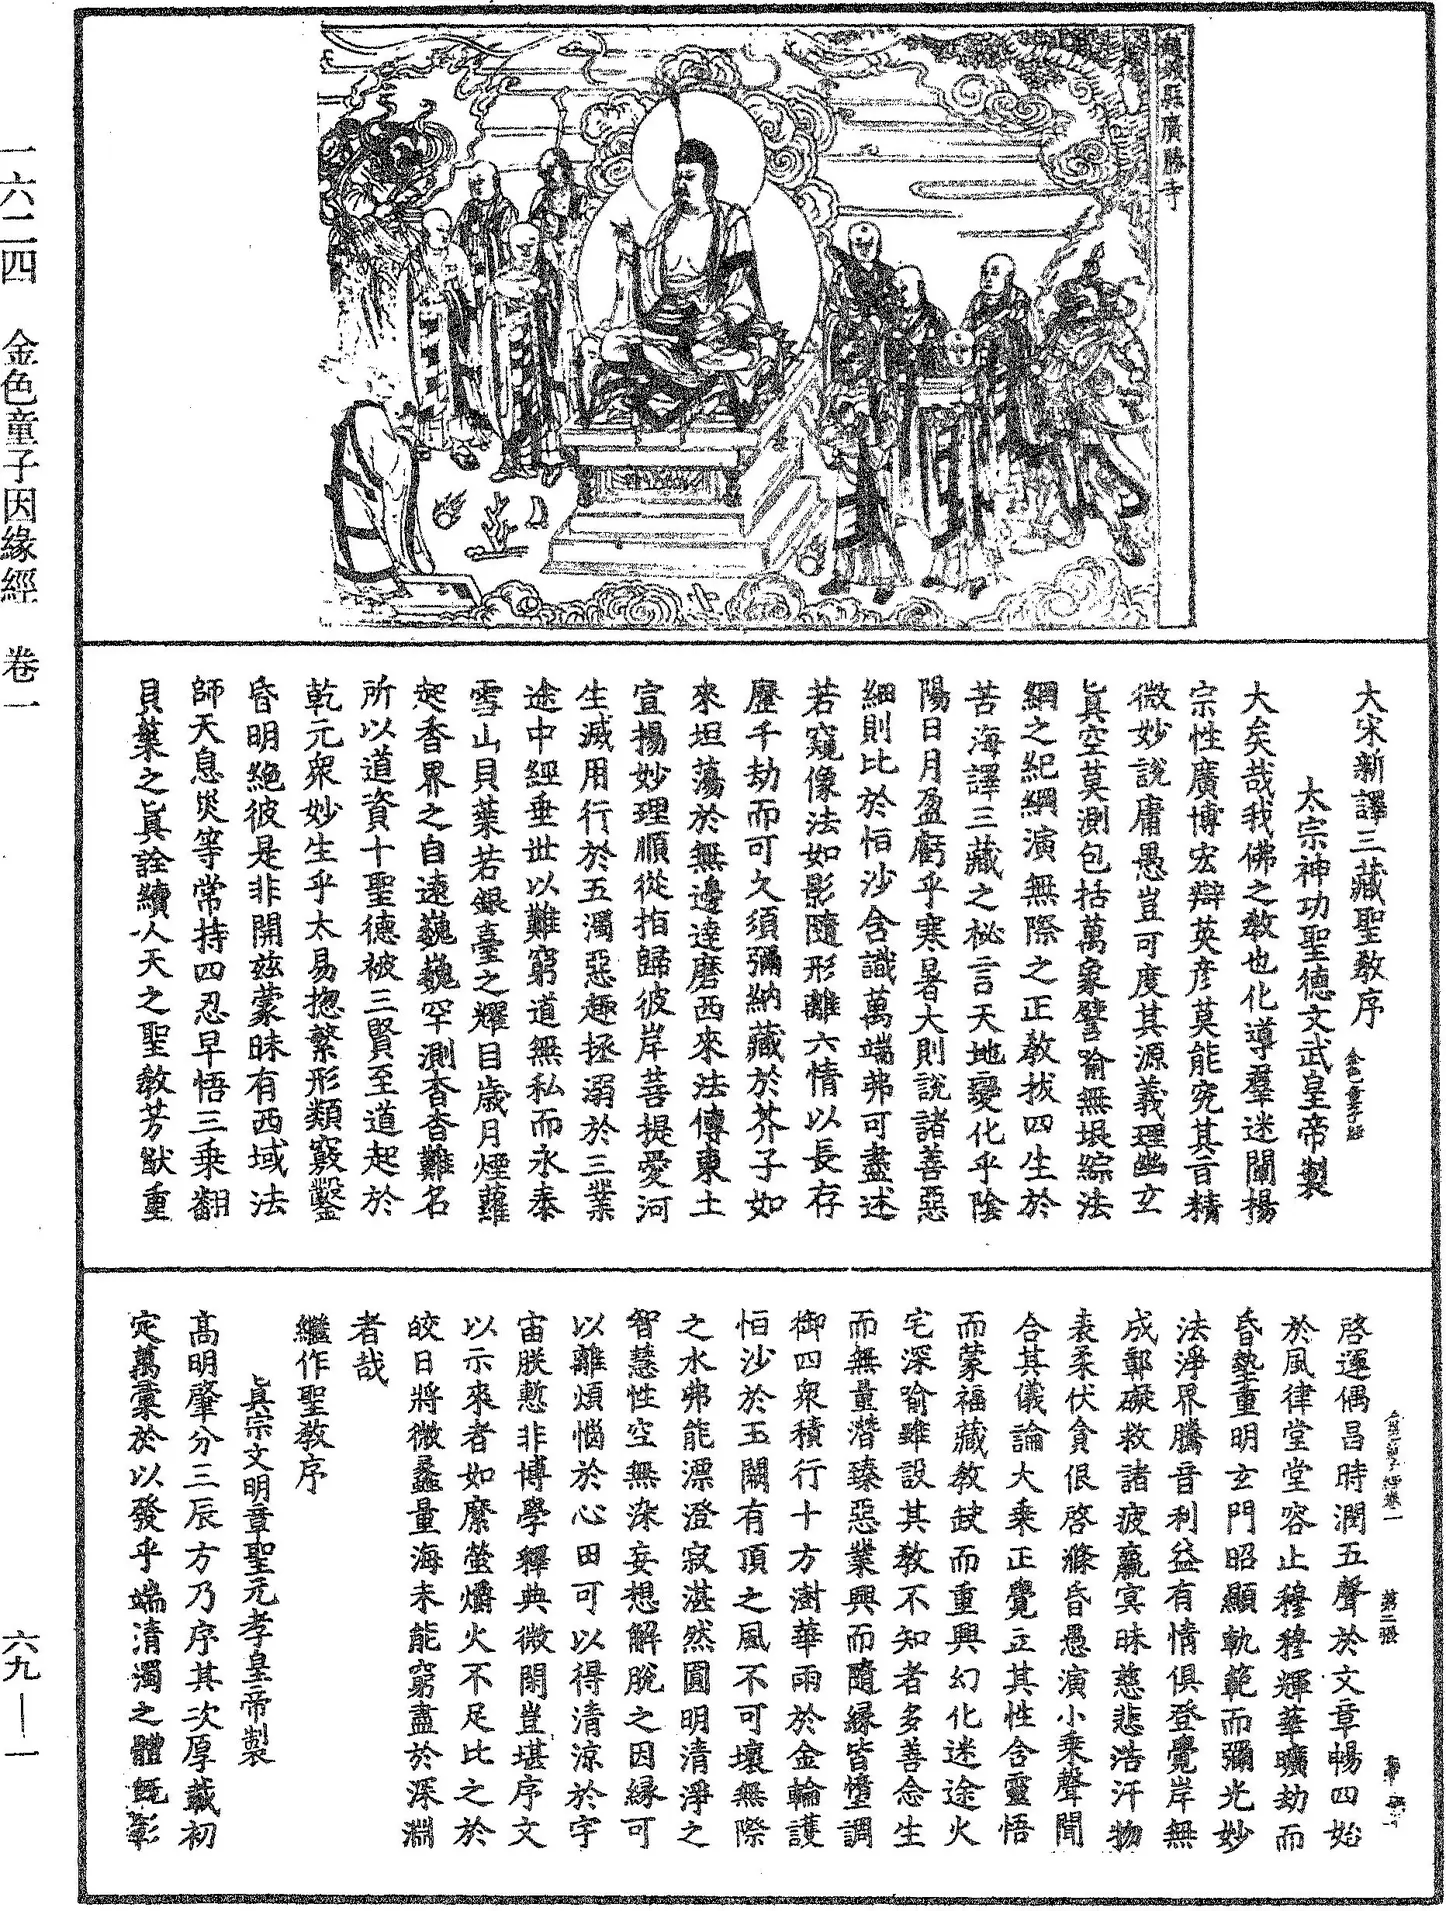 趙城縣廣勝寺
大宋新譯三藏聖教序 金色童子經
太宗神功聖德文武皇帝製
大矣哉我佛之教也化導羣迷闡揚
宗性廣博宏辯英彥莫能究其旨精
微妙說庸愚豈可度其源義理幽玄
眞空莫測包括萬象譬喻無垠綜法
網之紀綱演無際之正教拔四生於
苦海譯三藏之祕言天地變化乎陰
陽日月盈虧乎寒暑大則說諸善惡
細則比於恒沙含識萬端弗可盡述
若窺像法如影隨形離六情以長存
歷千劫而可久須彌納藏於芥子如
來坦蕩於無邊達磨西來法傳東土
宣揚妙理順從指歸彼岸菩提愛河
生滅用行於五濁惡趣拯溺於三業
途中經垂世以難窮道無私而永泰
雪山貝葉若銀臺之耀目歲月煙蘿
起香界之自遠巍巍罕測杳杳難名
所以道資十聖德被三賢至道起於
乾元衆妙生乎太易揔繁形類竅鑿
昏明絶彼是非開茲蒙昧有西域法
師天息災等常持四忍早悟三乘翻
貝葉之眞詮續人天之聖教芳猷重
金色童子經卷一 第二張
啓運偶昌時潤五聲於文章暢四始
於風律堂堂容止穆穆輝華曠劫而
昏墊重明玄門昭顯軌範而彌光妙
法淨界騰音利益有情俱登覺岸無
成鄣礙救諸疲羸冥昧慈悲浩汗物
表柔伏貪佷啓滌昏愚演小乘聲聞
合其儀論大乘正覺立其性含靈悟
而蒙福藏教缺而重興幻化迷途火
宅深喻雖設其教不知者多善念生
而無量潛臻惡業興而隨緣皆墮調
御四衆積行十方澍華雨於金輪護
恒沙於玉闕有頂之風不可壞無際
之水弗能漂澄寂湛然圓明清淨之
智慧性空無染妄想解脫之因緣可
以離煩惱於心田可以得清涼於宇
宙朕慙非博學釋典微閑豈堪序文
以示來者如縻螢爝火不足比之於
皎日將微蠡量海未能窮盡於深淵
者哉
繼作聖教序
眞宗文明章聖元孝皇帝製
高明肇分三辰方乃序其次厚載初
定萬彙於以發乎端清濁之體旣彰
一六二四 金色童子因緣經 卷一
六九—一